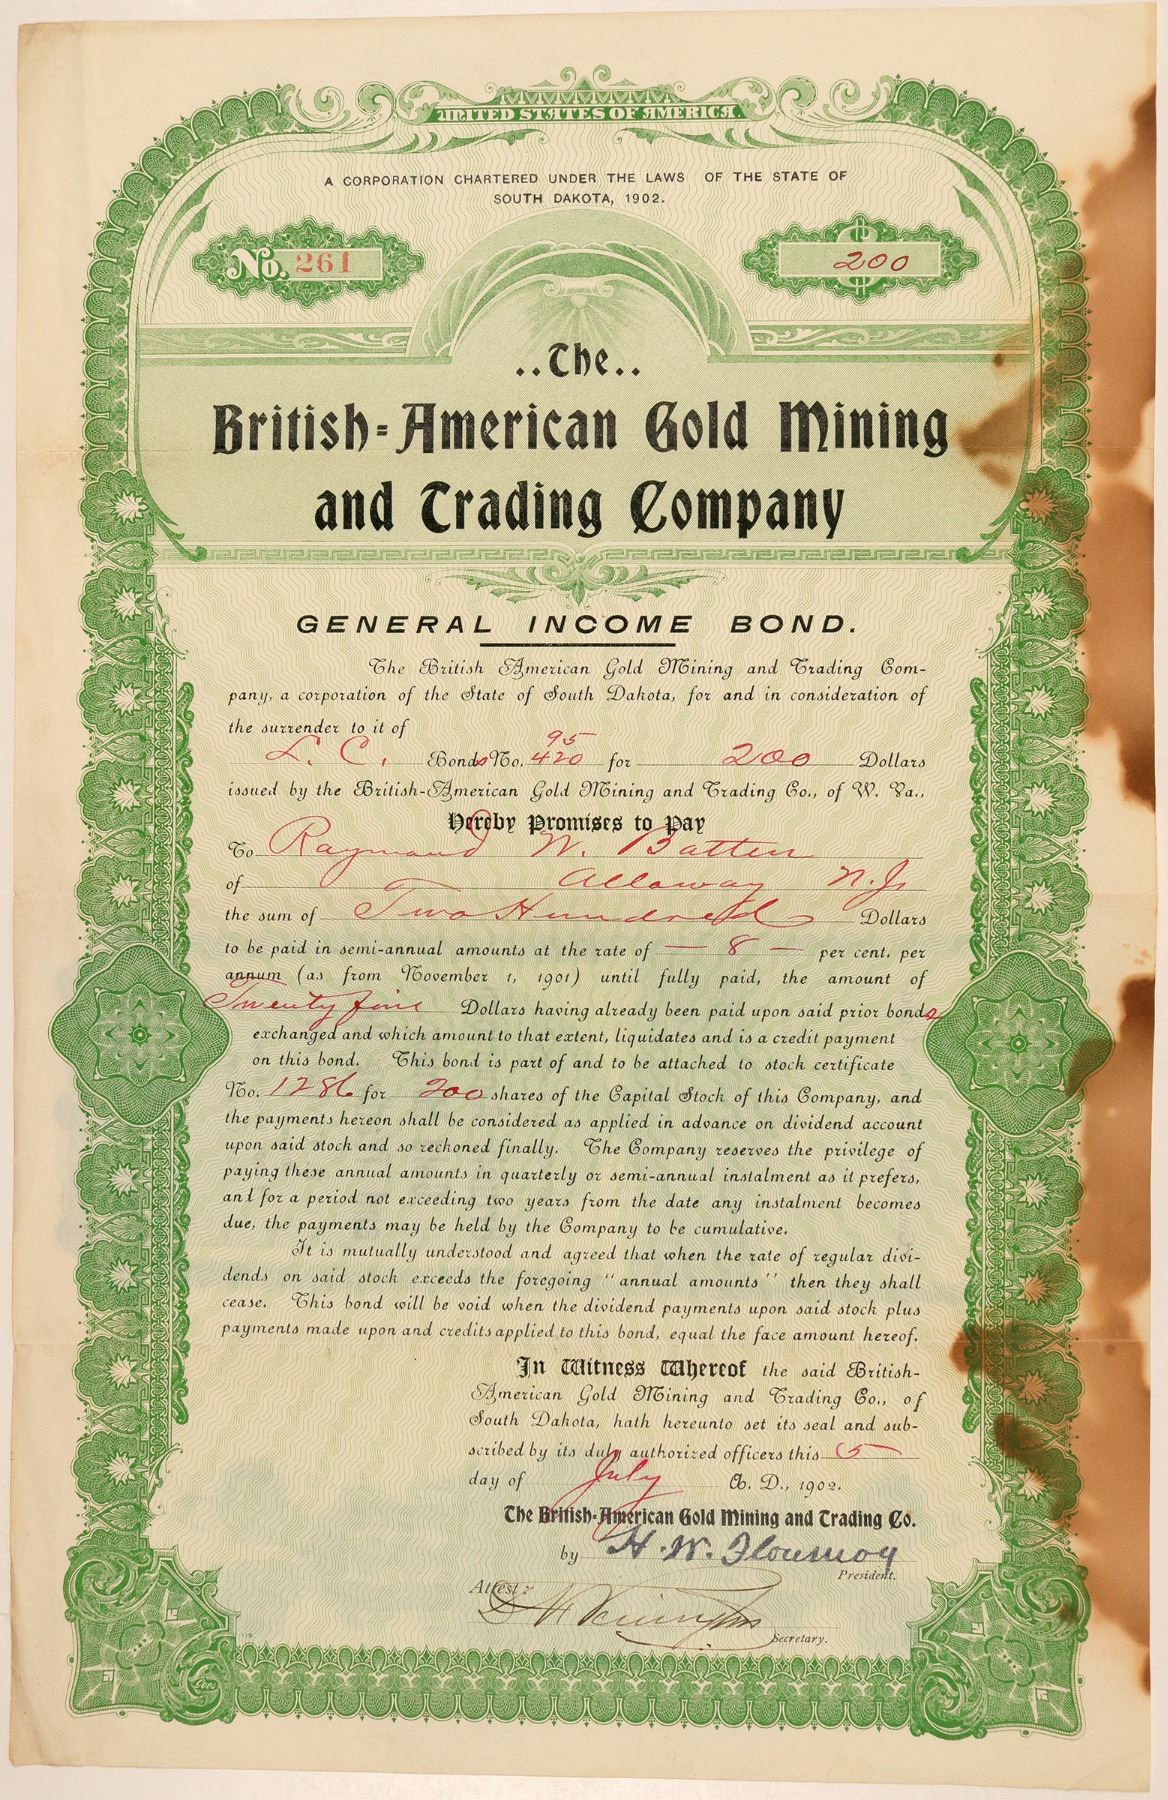 UNITED STATES OF AMERICA.
A CORPORATION CHARTERED UNDER THE LAWS OF THE STATE OF
SOUTH DAKOTA, 1902.
No. 261
$ 200
..The..
British-American Gold Mining
and Trading Company
GENERAL INCOME BOND.
The British American Gold Mining and Trading Com-
pany, a corporation of the State of South Dakota, for and in consideration of
the surrender to it of
95
L. C. Bonds No. 420 for 200 Dollars
issued by the British-American Gold Mining and Trading Co., of W. Va.,
Hereby Promises to Pay
To Raymond W. Batten
of Alloway N. J.
the sum of Two Hundred Dollars
to be paid in semi-annual amounts at the rate of — 8 — per cent. per
annum (as from November 1, 1901) until fully paid, the amount of
Twenty five Dollars having already been paid upon said prior bonds
exchanged and which amount to that extent, liquidates and is a credit payment
on this bond. This bond is part of and to be attached to stock certificate
No. 1286 for 200 shares of the Capital Stock of this Company, and
the payments hereon shall be considered as applied in advance on dividend account
upon said stock and so reckoned finally. The Company reserves the privilege of
paying these annual amounts in quarterly or semi-annual instalment as it prefers,
and for a period not exceeding two years from the date any instalment becomes
due, the payments may be held by the Company to be cumulative.
It is mutually understood and agreed that when the rate of regular divi-
dends on said stock exceeds the foregoing "annual amounts" then they shall
cease. This bond will be void when the dividend payments upon said stock plus
payments made upon and credits applied to this bond, equal the face amount hereof.
In Witness Whereof the said British-
American Gold Mining and Trading Co., of
South Dakota, hath hereunto set its seal and sub-
scribed by its duly authorized officers this 5
day of July A. D., 1902.
The British-American Gold Mining and Trading Co.
by H. W. Flournoy
President.
Attest:
Secretary.